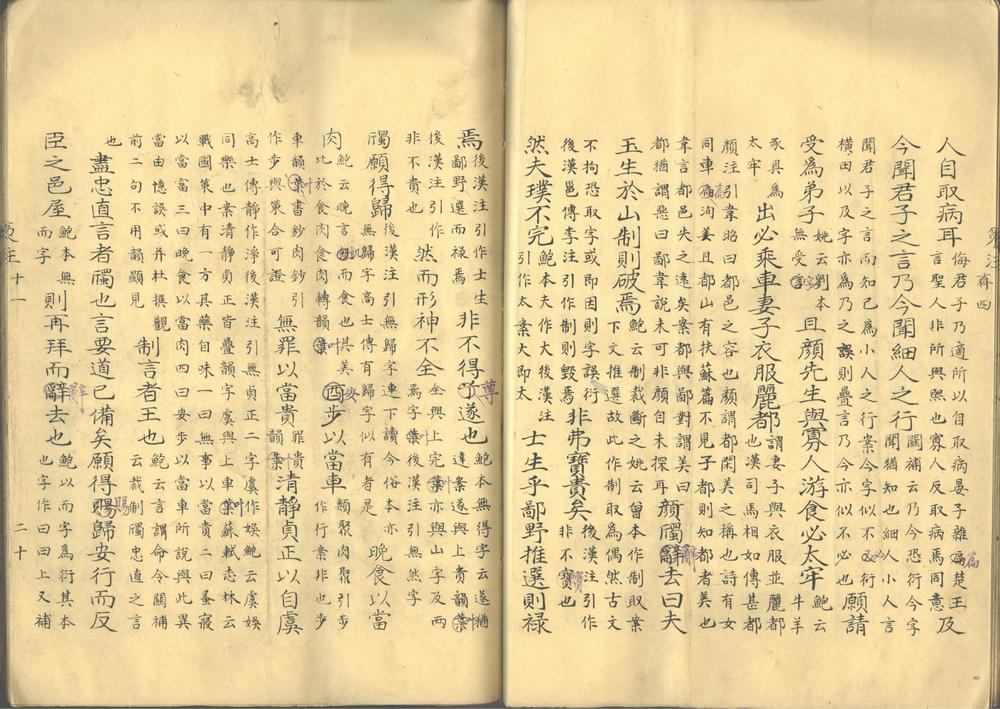 人自取病耳侮君子乃適所以自取病晏子雜篇楚王及
言聖人非所與熙也寡人反取病焉同意
今聞君子之言乃今聞細人之行闕補云乃今恐衍今字
鮑聞猶知也細人小人言
聞君子之言而知己為小人之行案今字似不必衍
橫田以及字亦為乃之誤則疊言乃今亦似不必也願請
受為弟子姚云劉本
無受言且顏先生與寡人游食必太牢鮑云
牛羊
豕具為
太牢出必乘車妻子衣服麗都謂妻子與衣服並麗都
也漢司馬相如傳甚都
顏注引韋昭曰都邑之容也顏謂都閑美之稱也詩有女
同車洵美且都山有扶蘇篇不見子都則知都者美也
韋言都邑失之遠矣案都與鄙對都謂美曰
都猶謂惡曰鄙韋說未可非顏自未探耳顏斶辭去曰夫
玉生於山制則破焉鮑云制裁斷之姚云曾本作制取案
下文推選故此作制取為偶然古文
不拘恐取字或即因則字誤衍
後漢邕傳李注引作制則毀焉非弗寶貴矣後漢注引作
非不寶貴也
然夫璞不完鮑本夫作大後漢注
引作太案大即太士生乎鄙野推選則祿
焉後漢注引作士生
鄙野選而祿焉非不得尊遂也鮑本無得字云遂猶
達案遂與上貴韻葉
後漢注引作
非不貴也然而形神不全全與上完葉亦與山字及兩
焉字葉後漢注引無然字
斶願得歸後漢注引無歸字連下讀今俗本亦
無歸字高士傳有歸字似有者是晚食以當
肉鮑云晚言飢而食也其美
比於食肉食肉轉韻葉安步以當車類聚肉聚引步
作行案非也步
車韻葉書鈔肉鈔引
作步與策合可證無罪以當貴罪貴
韻葉清靜貞正以自虞
高士傳靜作淨後漢注引無貞正二字虞作娛鮑云虞娛
同樂也案清靜貞正皆疊韻字虞與上車葉蘇軾志林云
戰國策中有一方具藥自味一曰無事以當貴二曰蚤寢
以當富三曰晚食以當肉四曰安步以當車所說與此異
當由憶誤或并杜撰觀
前二句不用韻顯見制言者王也鮑云言謂命令闕補
云裁制斶忠直之言
也盡忠直言者斶也言要道已備矣願得賜歸安行而反
臣之邑屋鮑本無
而字則再拜而辭去也鮑以而字為衍其本
也字作曰曰上又補
二十